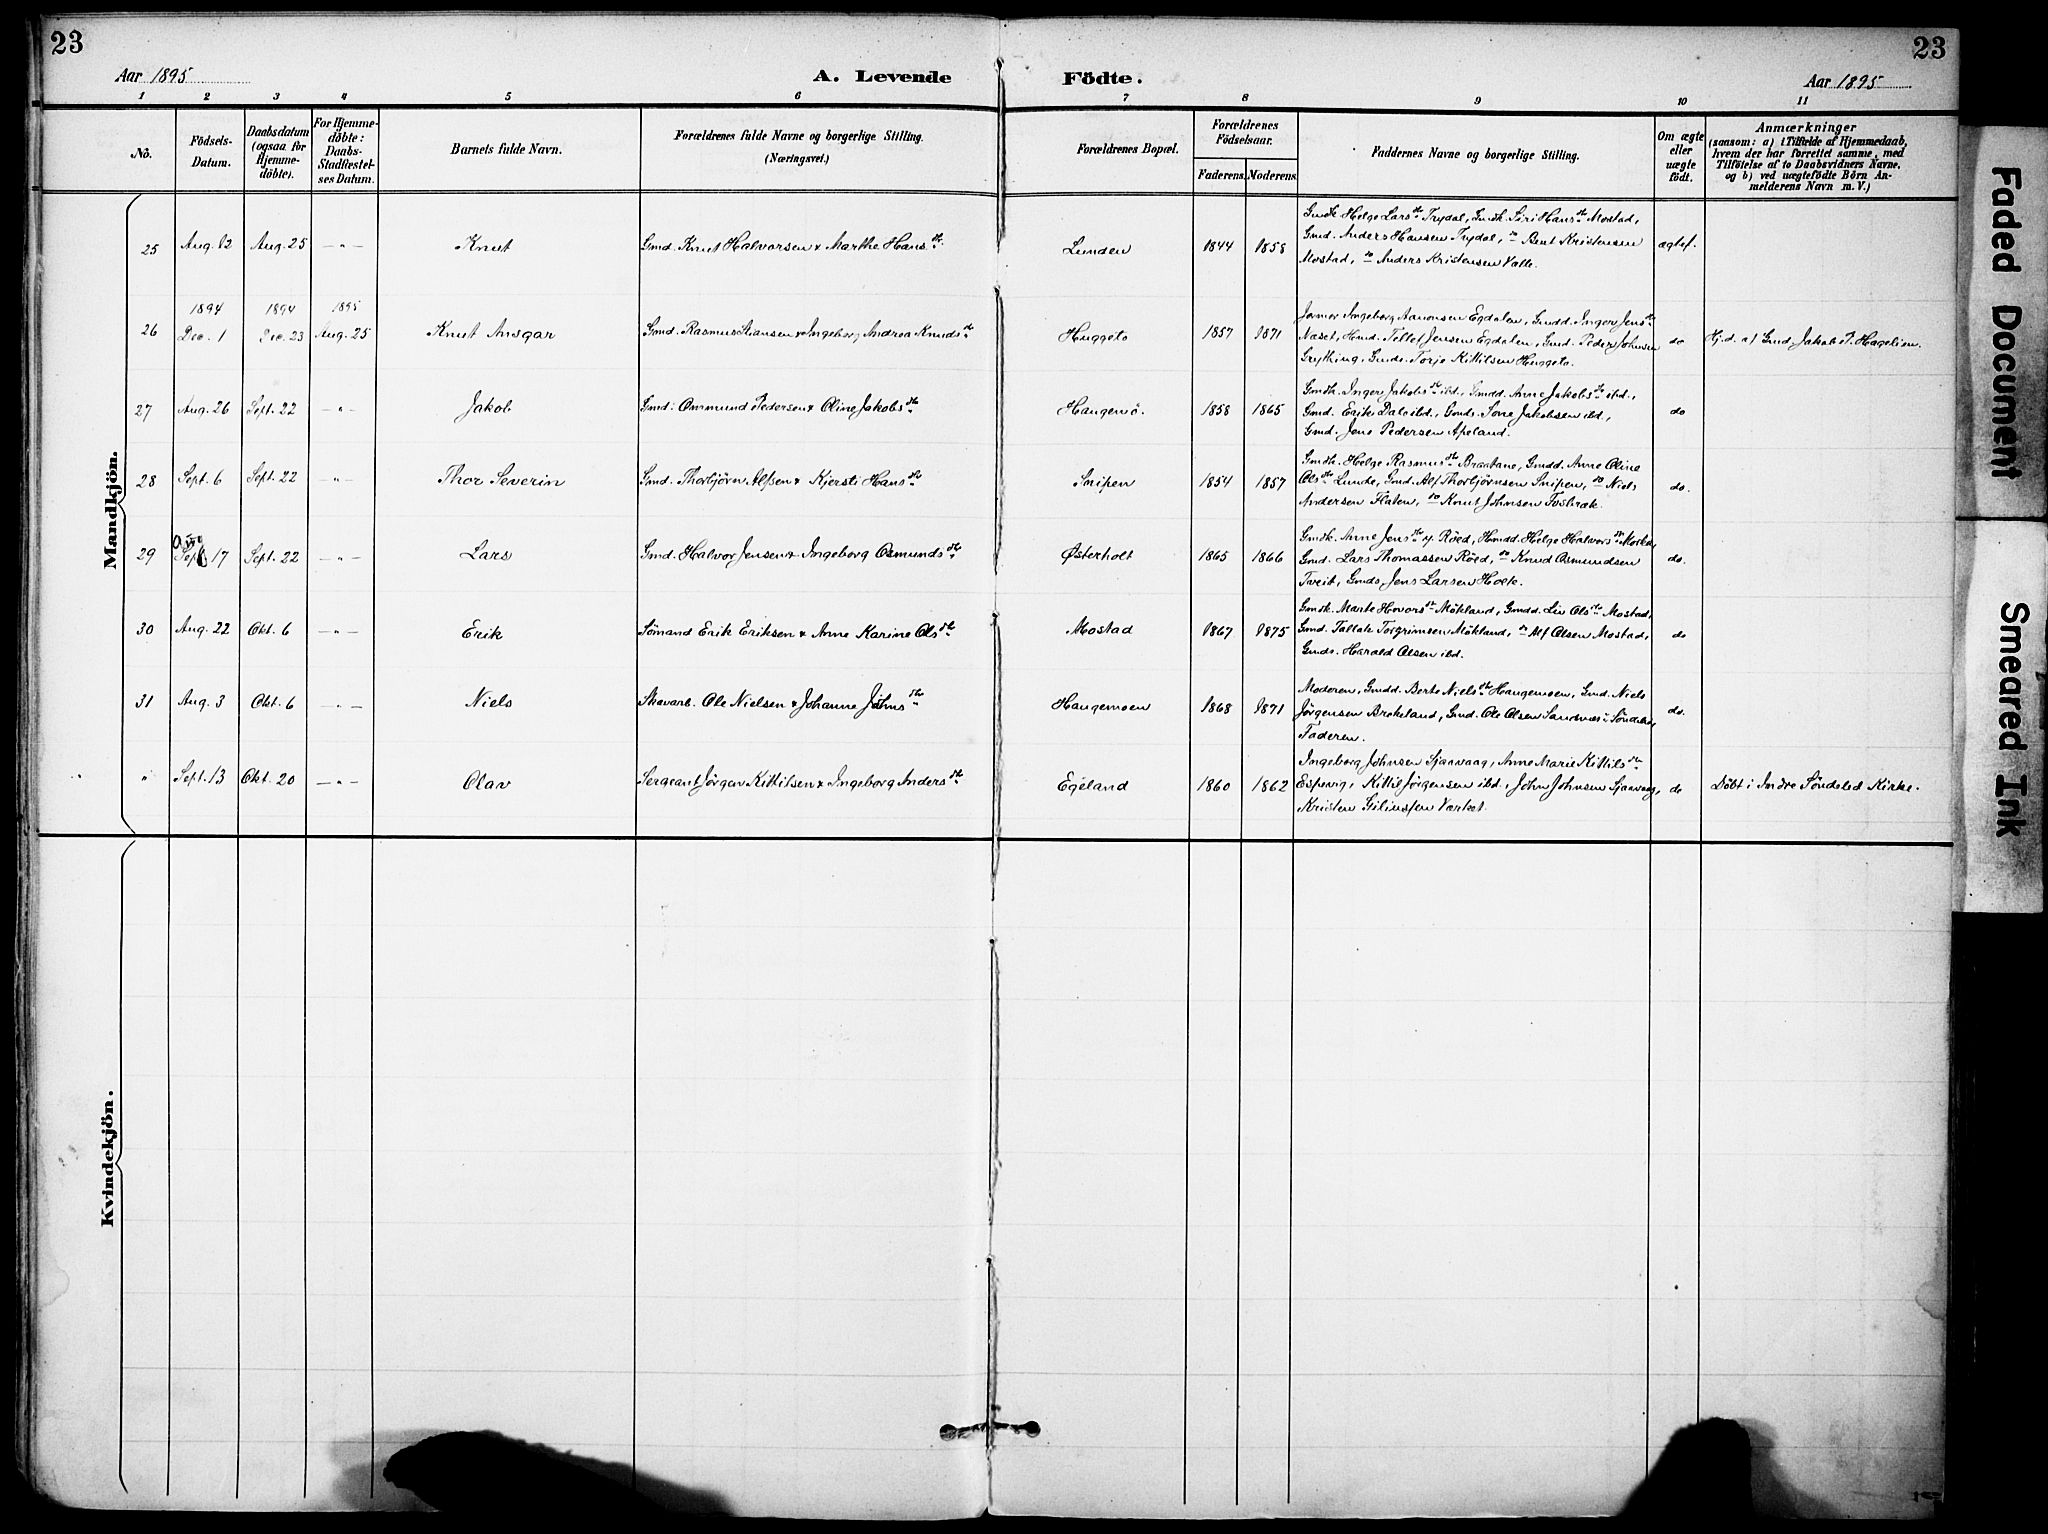 23
23
Aar 1895
A. Levende Födte.
Aar 1895
1 2 3 4 5 6 7 8 9 10 11
No.
Födsels-
Datum.
Daabsdatum
(ogsaa for
Hjemme-
döbte).
For Hjemme-
döbte:
Daabs-
Stadfæstel-
ses Datum.
Barnets fulde Navn.
Forældrenes fulde Navne og borgerlige Stilling.
(Næringsvei.)
Forældrenes Bopæl.
Forældrenes
Födselsaar.
Faderens. Moderens.
Faddernes Navne og borgerlige Stilling.
Om ægte
eller
uægte
födt.
Anmærkninger
(saasom: a) i Tilfælde af Hjemmedaab,
hvem der har forrettet samme, med
Tilföielse af to Daabsvidners Navne,
og b) ved uægtefödte Börn An-
melderens Navn m. V.)
Mandkjön.
25 Aug. 12 Aug. 25 — " — Knut Gmd. Knut Halvorsen & Marthe Hansdr. Lunden 1844 1858
Gmdk. Helge Larsdtr Trydal, Gmdk Siri Hansdtr Mostad,
Gmd. Anders Hansen Trydal, do Bent Kristensen
Mostad, do Anders Kristensen Valle.
ægtef.
26 1894 Dec. 1 1894 Dec. 23 1895 Aug. 25 Knut Ansgar Gmd. Rasmus Stiansen & Ingeborg Andrea Knudsdtr Huggeto 1857 1871
Jormor Ingeborg Aanonsen Egdalen, Gmdd. Inger Jensdtr
Næset, Hmd. Tellef Jensen Egdalen, Gmd. Peder Johnsen
Grytting, Gmds. Torje Kittilsen Huggeto.
do Hj.d. af Gmd. Jakob T. Hagelien.
27 Aug. 26 Sept. 22 — " — Jakob Gmd. Ommund Pedersen & Oline Jakobsdtr Haugemo. 1858 1865
Gmdk. Inger Jakobsdtr ibd., Gmdd. Anne Jakobsdtr ibd.,
Gmd. Erik Dale ibd., Gmds. Sone Jakobsen ibd,
Gmd. Jens Pedersen Apeland.
do
28 Sept. 6 Sept. 22 — " — Thor Severin Gmd. Thorbjörn Alfsen & Kjersti Hansdtr Snipen 1854 1857
Gmdk. Helge Rasmusdtr Braatane, Gmdd. Anne Oline
Olsdtr Lunde, Gmd. Alf Thorbjörnsen Snipen, do Niels
Andersen Flaten, do Knut Johnsen Fosbræk.
do.
29 Aug Sept 17 Sept. 22 — " — Lars Gmd. Halvor Jensen & Ingeborg Osmundsdtr Østerholt 1865 1866
Gmdk. Anne Jensdtr y. Röed, Hmdd. Helge Halvorsdtr
Gmd. Lars Thomassen Röed, do Knud Osmundsen
Tveit, Gmds. Jens Larsen Holk.
do.
30 Aug. 22 Okt. 6 — " — Erik Sömand Erik Eriksen & Anne Karine Olsdtr Mostad 1867 1875
Gmdk. Marte Hovorsdtr Mökland, Gmdd. Liv Olsdtr Mostad,
Gmd. Tallak Torgrimsen Mökland, do Alf Olsen Mostad,
Gmds. Harald Olsen ibd.
do
31 Aug. 3 Okt. 6 — " — Niels Skovarb. Ole Nielsen & Johanne Johnsdtr Haugemoen 1868 1871
Moderen, Gmdd. Berte Nielsdtr Haugemoen, Gmd. Niels
Jörgensen Brokeland, Gmd. Ole Olsen Sandnæs i Söndeled,
Faderen.
do.
" Sept. 13 Okt. 20 — " — Olav Sergeant Jörgen Kittilsen & Ingeborg Andersdtr Egeland 1860 1862
Ingeborg Johnsen Sjaavaag, Anne Marie Kittilsdtr
Espevig, Kittil Jörgensen ibd., John Johnsen Sjaavaag,
Kristen
do Döbt i Indre Söndeled Kirke.
Kvindekjön.
Faded Document
Smeared Ink